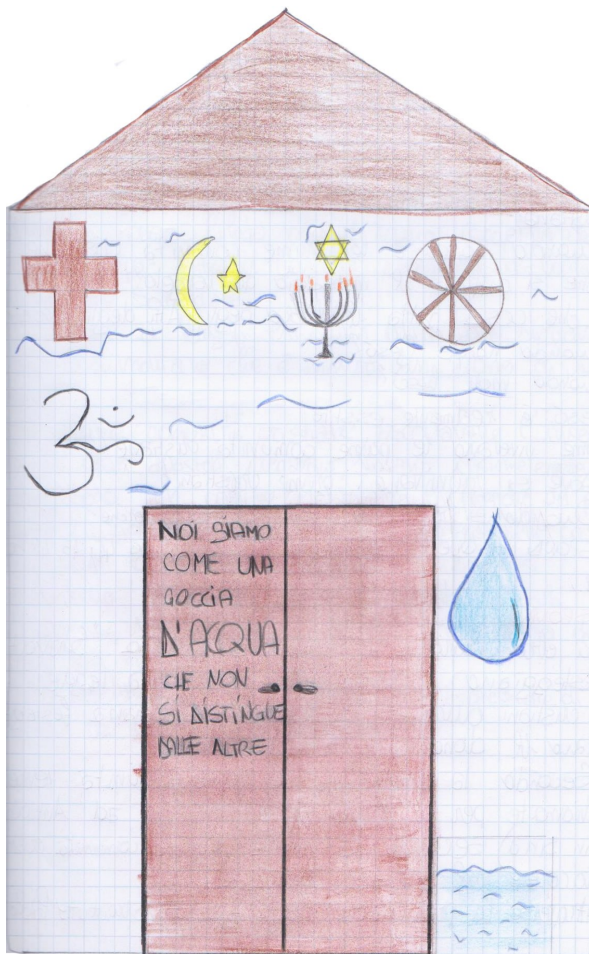 NOI SIAMO
COME UNA
GOCCIA
D'ACQUA
CHE NON
SI DISTINGUE
DALLE ALTRE